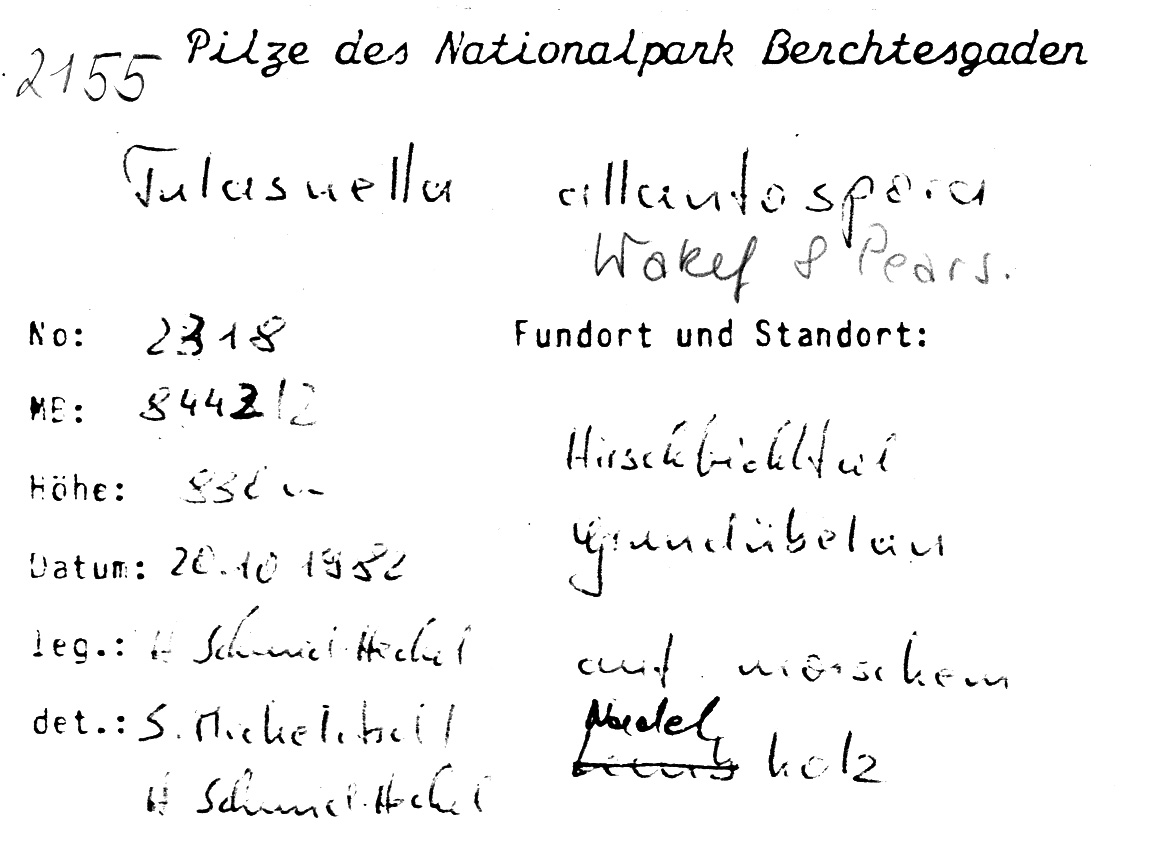 2155 Pilze des Nationalpark Berchtesgaden
Tulasnella allantospora
Wakef & Pears.
No: 2318
Fundort und Standort:
MB: 8443/2
Hirschbichltal
Höhe: 882 m
Grundübelau
Datum: 20.10 1982
leg.: H Schmid-Heckel
auf morschem
det.: S. Michelitsch
Nadel
holz
H Schmid-Heckel